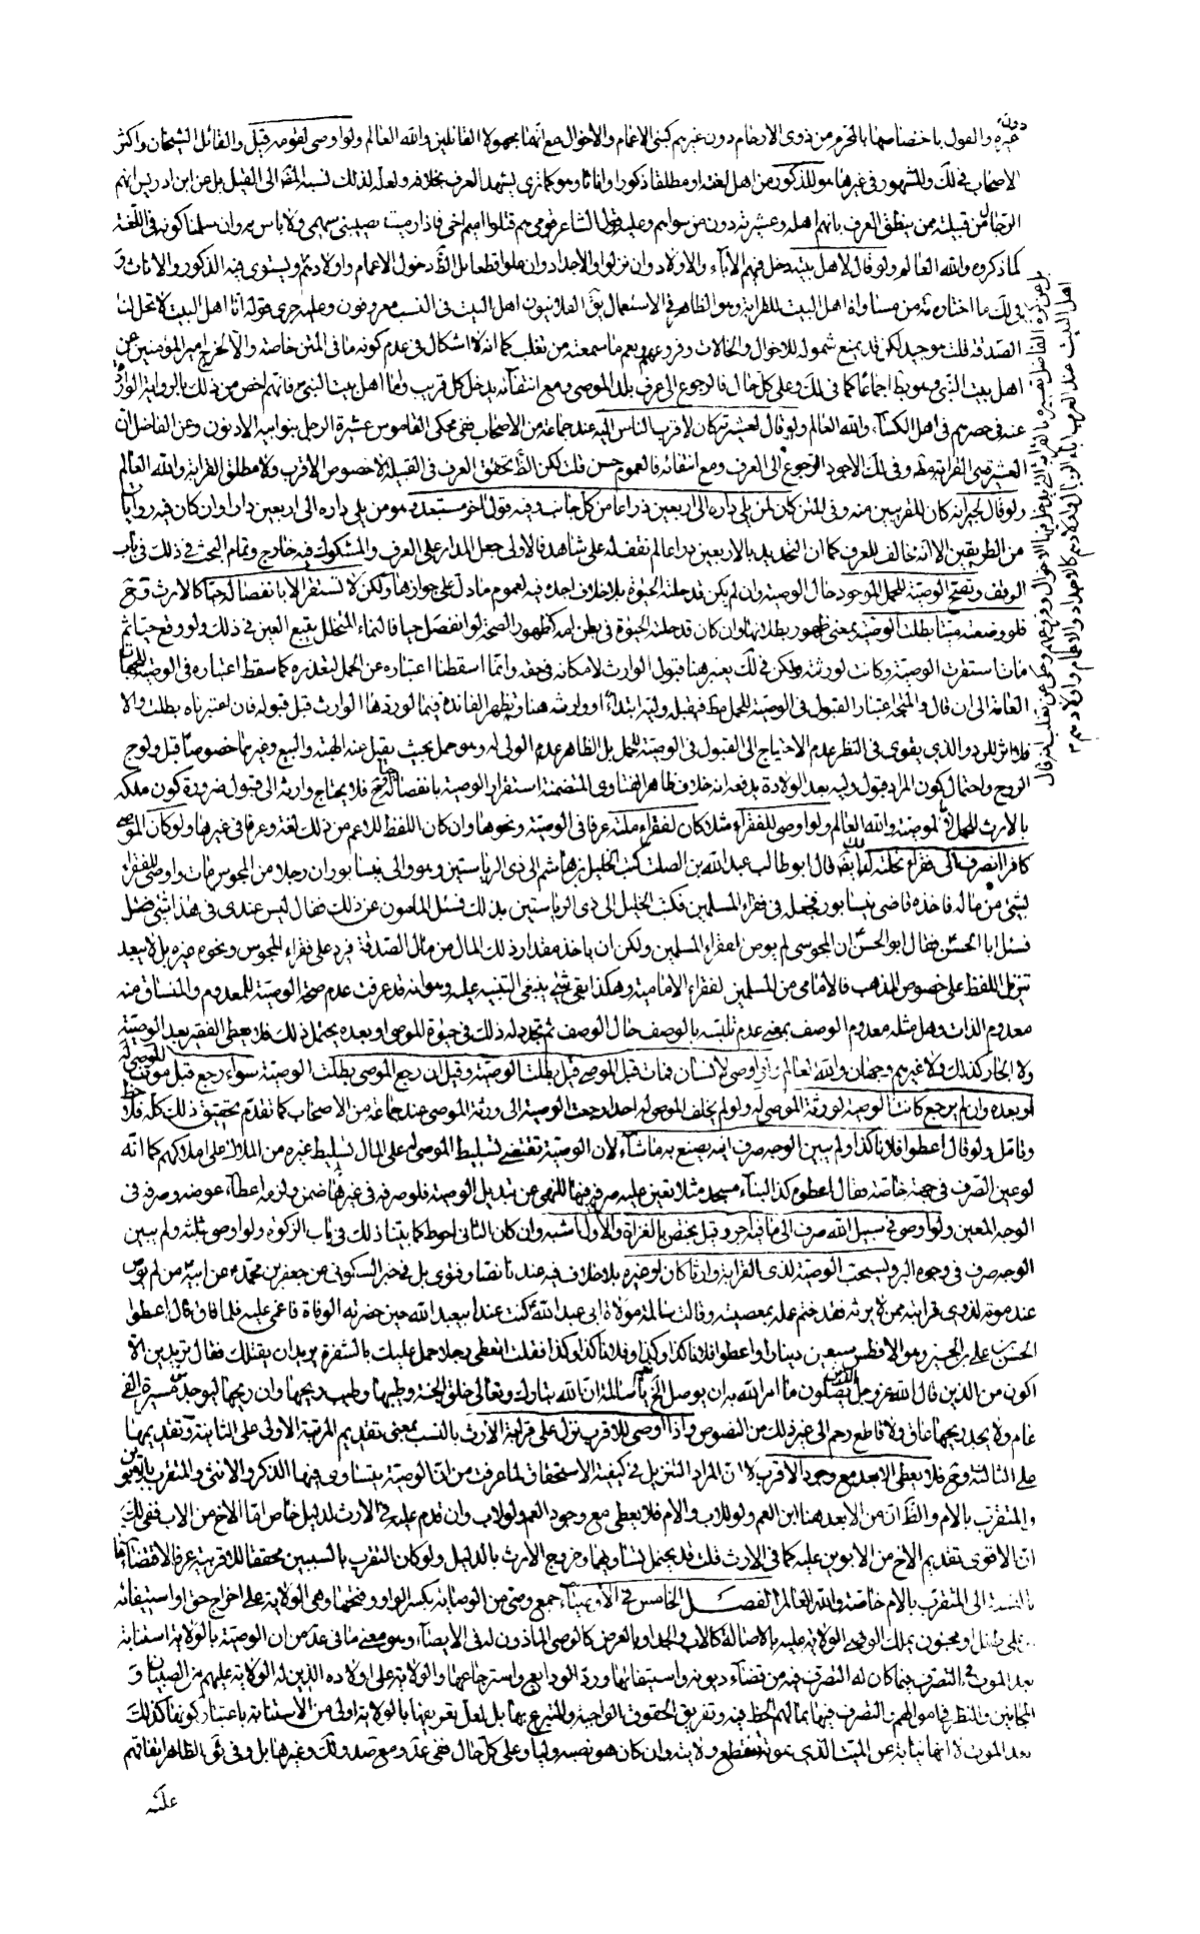 دون
غيره والقول باختصاصها بالمحرم من ذوى الارحام دون غيرهم كبنى الاعمام والاخوال مع انهما مجهولا القائلين والله العالم ولو اوصى لقومه قيل والقائل الشيخان واكثر
الاصحاب فى لك والمشهور فى غيرها هو للذكور من اهل لغته او مطلقا ذكورا واناثا وهو كما ترى يشهد العرف بخلافه ولعله لذلك نسبه المصَ الى القيل بل عن ابن ادريس انهم
الرجال من قبيلته ممن ينطلق العرف بانهم اهله وعشيرته دون من سواهم وعليه قول الشاعر قومى هم قتلوا اميم اخى فاذا رميت يصيبنى سهمى ولا باس به وان سلمنا كونه فى اللغة
كما ذكروه والله العالم ولو قال لاهل بيته دخل فيهم الآباء والاولاد وان نزلوا والاجداد وان علوا قطعا بل الظَّ دخول الاعمام واولادهم ويستوى فيه الذكور والاناث وَ
فى لك ما اختاره مَه من مساواة اهل البيت للقرابة وهو الظاهر فى الاستعمال يقَ الفلانيون اهل البيت فى النسب معروفون وعليه جرى قوله انا اهل البيت لا تحل لنا
الصدقة قلت هو جيد لكن قد يمنع شموله للاخوال والخالات وفروعهم ويعم ما سمعته من ثعلب كما انه لا اشكال فى عدم كونه ما فى المتن خاصة والا لخرج امير المؤمنين عن
اهل بيت النبى وهو بط اجماعا كما فى لك وعلى كل حال فالرجوع الى عرف بلد الموصى ومع انتفائه يدخل كل قريب واما اهل بيت النبى فانهم اخص من ذلك بالرواية الواردة
عنه فى حصرهم فى اهل الكساء، والله العالم ولو قال لعشيرته كان لاقرب الناس اليه عند جماعة من الاصحاب ففى محكى القاموس عشيرة الرجل بنو ابيه الادنون وعن الفاضل ان
العشيرة هى القرابة مطَ وفى لك الاجود الرجوع الى العرف ومع انتفائه فالعموم حسن قلت لكن الظَّ تحقق العرف فى القبيلة لا خصوص الاقرب ولا مطلق القرابة والله العالم
ولو قال لجيرانه كان للقريبين منه وفى المتن كان لمن يلى داره الى اربعين ذراعا من كل جانب وفيه قول اخر مستبعد وهو من يلى داره الى اربعين دارا وان كان فيه روايات
من الطريقين الا انه مخالف للعرف كما ان التحديد بالاربعين ذراعا لم نقف له على شاهد فالاولى جعل المدار على العرف والمشكوك فيه خارج وتمام البحث فى ذلك فى باب
الوقف وتصح الوصية للحمل الموجود حال الوصية وان لم يكن قد حلته الحيوة بلا خلاف اجده فيه لعموم ما دل على جوازها ولكن لا تستقر الا بانفصاله حيا كالارث وحَ
فلو وضعته ميتا بطلت الوصية بمعنى ظهور بطلانها وان كان قد حلته الحيوة فى بطن امه كظهور الصحة لو انفصل حيا فالنماء المتخلل يتبع العين فى ذلك ولو وقع حيا ثم
مات استقرت الوصية وكانت لورثته ولكن فى لك يعتبر هنا قبول الوارث لامكانه فى حقه وانما اسقطنا اعتباره عن الحمل لتعذره كما سقط اعتباره فى الوصية للجهات
العامة الى ان قال والمتجه اعتبار القبول فى الوصية للحمل مطَ فيقبله وليه ابتداءً او وارثه هنا ويظهر الفائدة فيما لو ردها الوارث قبل قبوله فان اعتبرناه بطلت والا
فلا اثر للرد والذى يقوى فى النظر عدم الاحتياج الى القبول فى الوصية للحمل بل الظاهر عدم الولى له وهو حمل بحيث يقبل عنه الهبة والبيع وغيرهما خصوصا قبل ولوج
الروح واحتمال كون المراد قبول وليه بعد الولادة يدفعه انه خلاف ظاهر الفتاوى المتضمنة استقرار الوصية بانفصاله حيا وحَ فلا يحتاج وارثه الى قبول ضرورة كون ملكه
بالارث للحمل لا بالوصية والله العالم ولو اوصى للفقراء مثلا كان لفقراء ملته عرفا فى الوصية ونحوها وان كان اللفظ للاعم من ذلك لغة وعرفا فى غيرها ولو كان الموصى
كافرا انصرف الى فقراء نحلته قال ابو طالب عبد الله بن الصلت كتب الخليل بن هاشم الى ذى الرياستين وهو والى نيسابور ان رجلا من المجوس مات واوصى للفقراء
بشئ من ماله فاخذه قاضى نيسابور فجعله فى فقراء المسلمين فكتب الخليل الى ذى الرياستين بذلك فسئل المامون عن ذلك فقال ليس عندى فى هذا شئ فسئل
فسئل ابا الحسن فقال ابو الحسن ان المجوسى لم يوص لفقراء المسلمين ولكن ان ياخذ مقدار ذلك المال من مال الصدقة فيرد على فقراء المجوس ونحوه غيره بل لا يبعد
تنزيل اللفظ على خصوص المذهب فالامامى من المسلمين لفقراء الامامية وهكذا بقى شئ ينبغى التنبيه عليه وهو انه قد عرفت عدم صحة الوصية للمعدوم والمنساق منه
معدوم الذات وهل مثله معدوم الوصف بمعنى عدم تلبسه بالوصف حال الوصف ثم تجدد له ذلك فى حيوة الموصى او بعده يحتمل ذلك فلا يعطى الفقير بعد الوصية
ولا الجار كذلك ولا غيرهم وجهان والله العالم ولو اوصى لانسان فمات قبل الموصى قيل بطلت الوصية وقيل ان رجع الموصى بطلت الوصية سواء رجع قبل موت الموصى له
او بعده وان لم يرجع كانت الوصية لورثة الموصى له ولو لم يخلف الموصى له احدا رجعت الوصية الى ورثة الموصى عند جماعة من الاصحاب كما تقدم تحقيق ذلك كله فلاحظ
وتامل ولو قال اعطوا فلانا كذا ولم يبين الوجه صرف اليه يصنع به ما شاء لان الوصية تقتضى تسليط الموصى له على المال تسليط غيره من الملاك على املاكهم كما انه
لو عين الصرف فى جهة خاصة فقال اعطوه كذا لبناء مسجد مثلا تعين عليه صرفه فيها للنهى عن تبديل الوصية فلو صرفه فى غيرها ضمن ولزمه اعطاء عوضه وصرفه فى
الوجه المعين ولو اوصى فى سبيل الله صرف الى ما فيه اجر وقيل يختص بالغزاة والاول اشبه وان كان الثانى احوط كما بيّنا ذلك فى باب الزكوة ولو اوصى بثلثه ولم يبين
الوجه صرف فى وجوه البر ويستحب الوصية لذى القرابة وارثا كان او غيره بلا خلاف فيه عندنا نصا وفتوى بل فى خبر السكونى عن جعفر بن محمد عن ابيه من لم يوص
عند موته لذوى قرابته ممن لا يرثه فقد ختم عمله بمعصيته وقالت سالمة مولاة ابى عبد الله كنت عند ابيعبد الله حين حضرته الوفاة فاغمى عليه فلما افاق قال اعطوا
الحسن بن على بن الحسين وهو الافطس سبعين دينارا واعطوا فلانا كذا وكذا وفلانا كذا وكذا فقلت اتعطى رجلا حمل عليك بالشفرة يريد ان يقتلك فقال تريدين الا
اكون من الذين قال الله عز وجل الذين يصلون ما امر الله به ان يوصل الخ نعم يا سالمة ان الله تبارك وتعالى خلق الجنة وطيبها وطيب ريحها وان ريحها ليوجد من مسيرة الفى
عام ولا يجد ريحها عاق ولا قاطع رحم الى غير ذلك من النصوص واذا اوصى للاقرب نزل على قرابة الارث بالنسب بمعنى تقديم المرتبة الاولى على الثانية وتقديمها
على الثالثة وحَ فلا يعطى الابعد مع وجود الاقرب لا ان المراد التنزيل فى كيفية الاستحقاق لما عرفت من ان الوصية يتساوى فيها الذكر والانثى والمتقرب بالابوين
والمتقرب بالام والظَّ ان من الابعد هنا ابن العم ولو للاب والام فلا يعطى مع وجود العم ولو لاب وان قدم عليه فى الارث لدليل خاص اما الاخ من الاب ففى لك
ان الاقوى تقديم الاخ من الابوين عليه كما فى الارث قلت قد يحتمل تساويهما وخروج الارث بالدليل ولو كان التقرب بالسببين محققا للاقربية عرفا لاقتضاه
بالنسبة الى المتقرب بالام خاصة والله العالم الفصل الخامس فى الاوصياء جمع وصى من الوصاية بكسر الواو وفتحها وهى الولاية على اخراج حق او استيفائه
على طفل او مجنون يملك الوصى الولاية عليه بالاصالة كالاب والجد او بالعرض كالوصى الماذون له فى الايصاء وهو معنى ما فى عد من ان الوصية بالولاية استنابة
بعد الموت فى التصرف فيما كان له التصرف فيه من قضاء ديونه واستيفائها ورد الودايع واسترجاعها والولاية على اولاده الذين له الولاية عليهم من الصبيان وَ
المجانين والنظر فى اموالهم والتصرف فيها بما لهم الحظ فيه وتفريق الحقوق الواجبة والمتبرع بها بل لعل تعريفها بالولاية اولى من الاستنابة باعتبار كونها كذلك
بعد الموت لا انها نيابة عن الميت الذى بموته تنقطع ولايته وان كان هو نصبه وليا وعلى كل حال ففى عد ومع صد ولك وغيرها بل وفى ئق الظاهر اتفاقهم
عليه